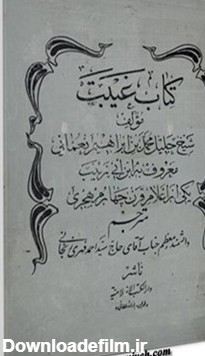 کتاب غیبت
تألیف
شیخ جلیل محمد بن ابراهیم نعمانی
معروف به ابن ابی زینب
یکی از اعلام قرن چهارم هجری
مترجم
دانشمند معظم جناب آقای حاج سید احمد فهری زنجانی
ناشر
دارالکتب الاسلامیه
Downloadefilm.ir